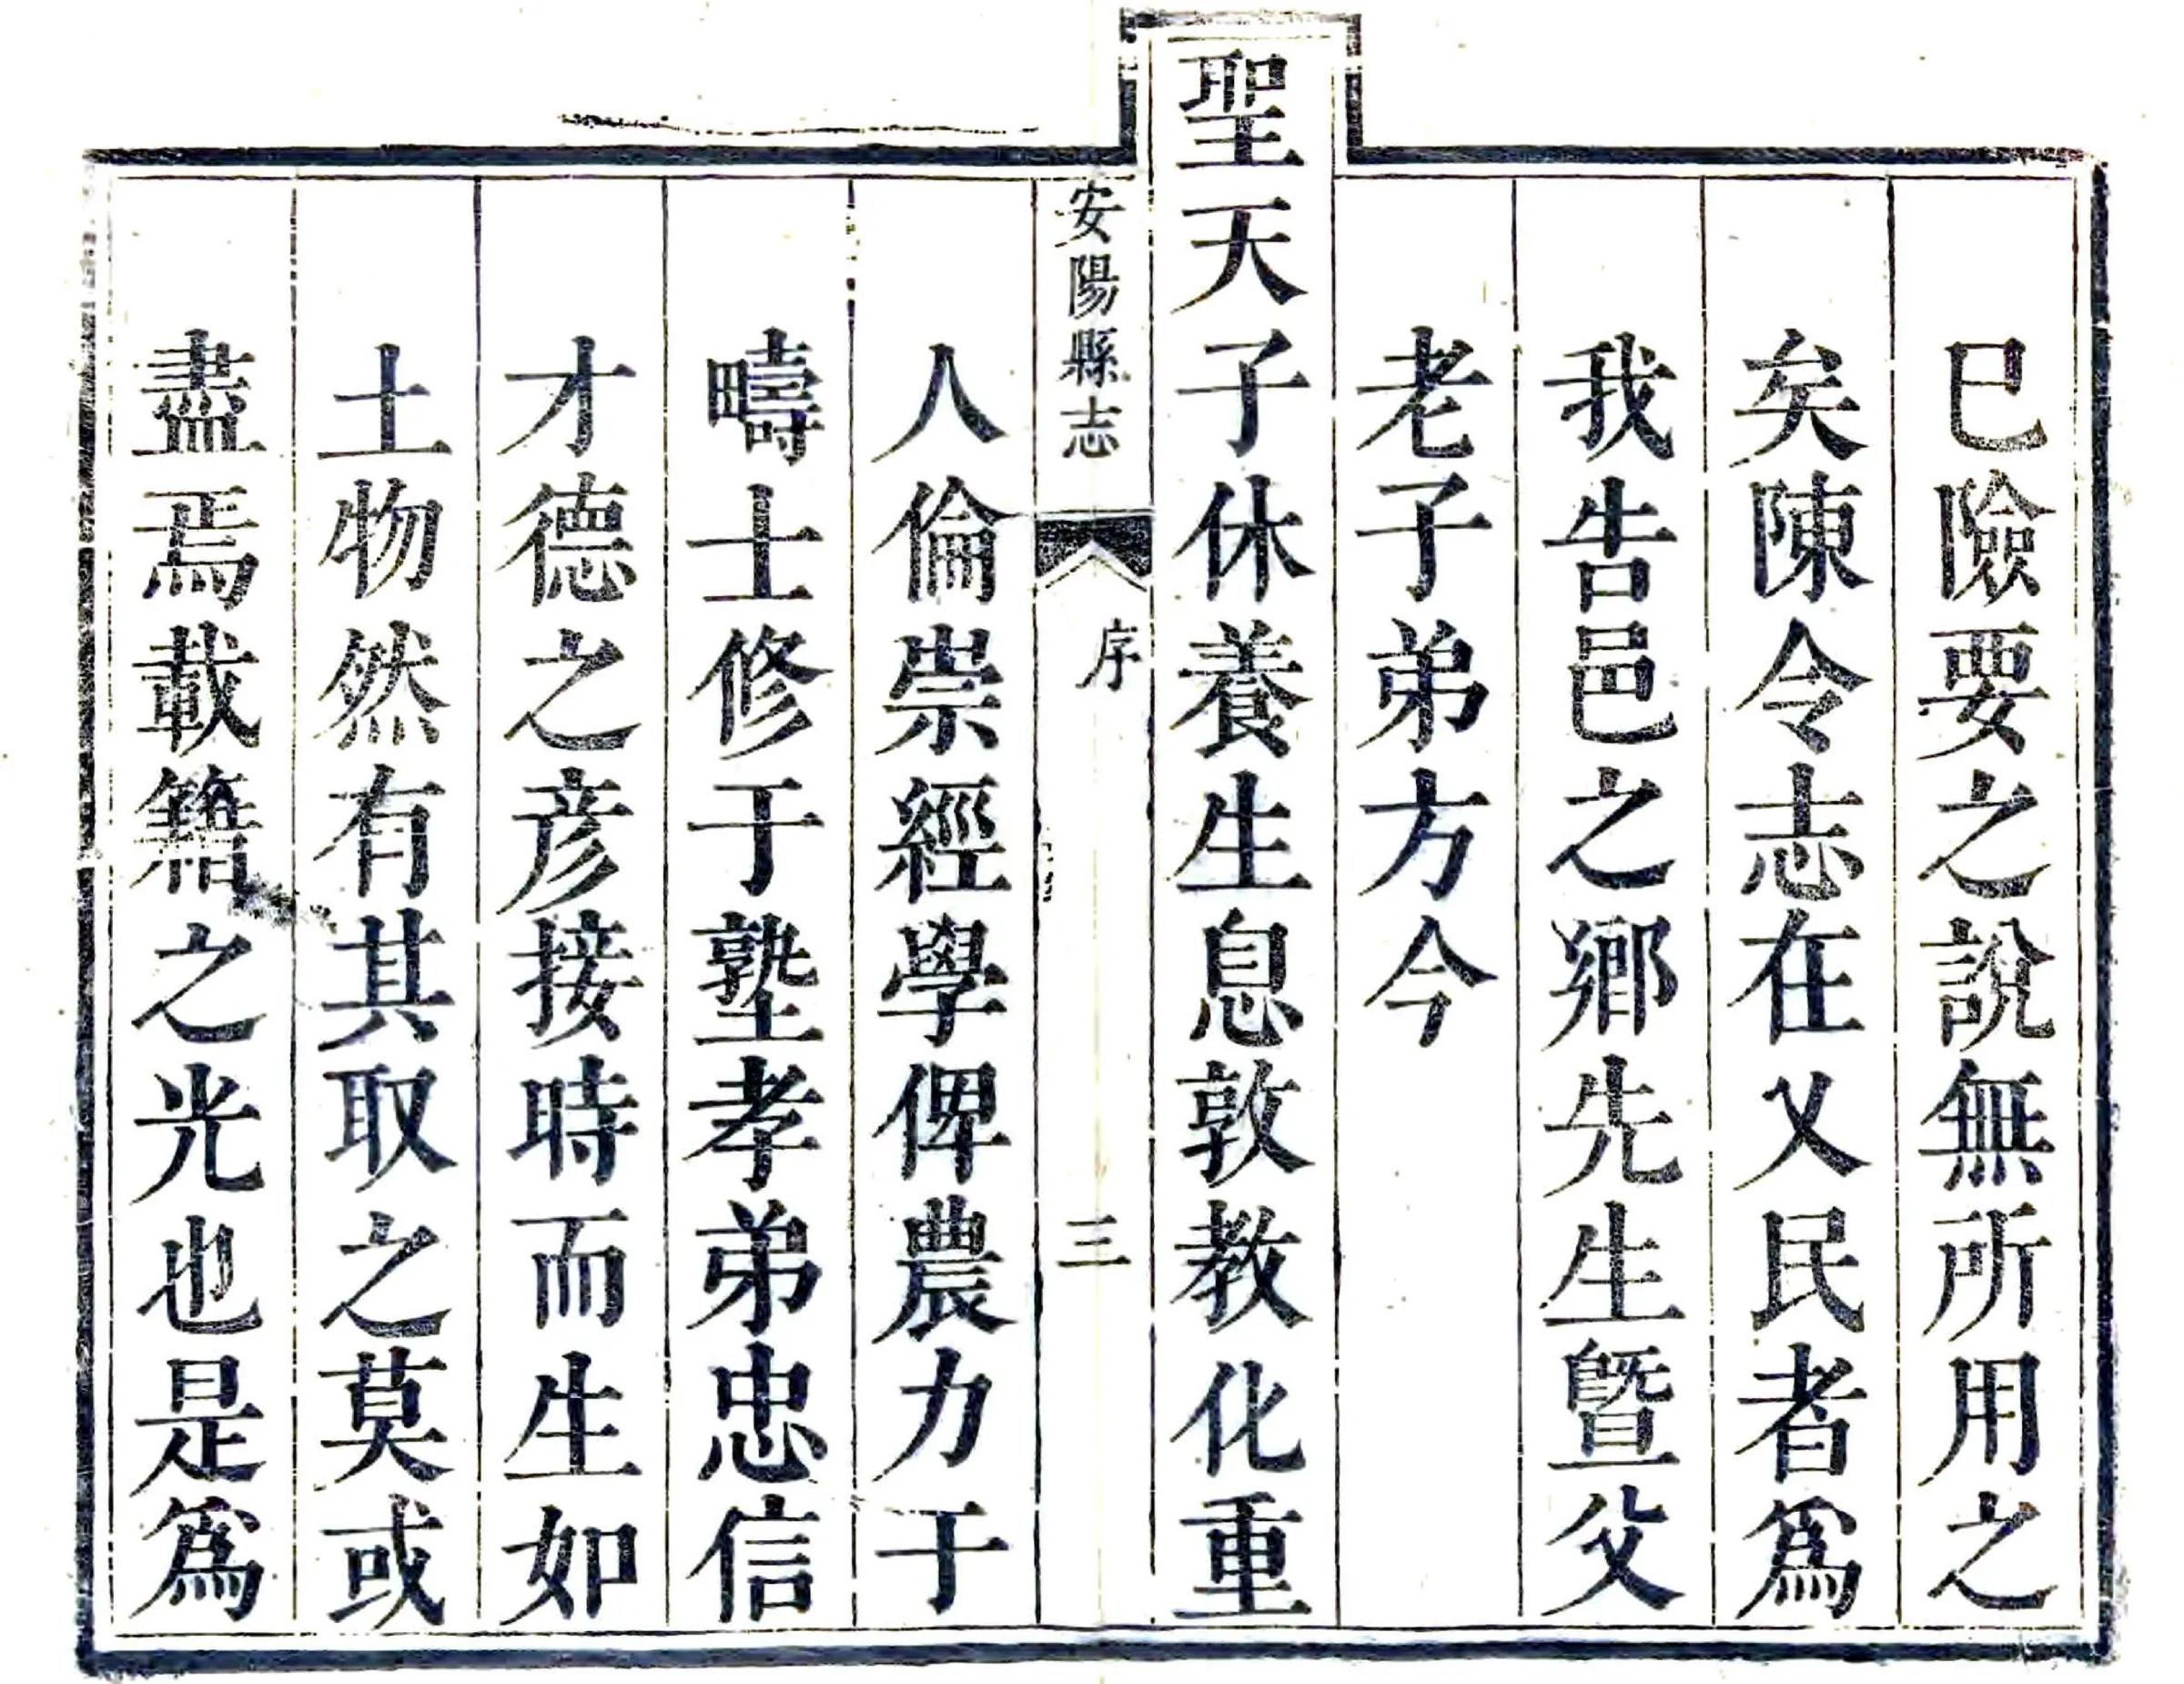 已險要之說無所用之
矣陳令志在乂民者爲
我告邑之鄉先生暨父
老子弟方今
聖天子休養生息敦教化重
安陽縣志
序
三
人倫崇經學俾農力于
疇士修于塾孝弟忠信
才德之彦接時而生如
土物然有其取之莫或
盡焉載籍之光也是爲